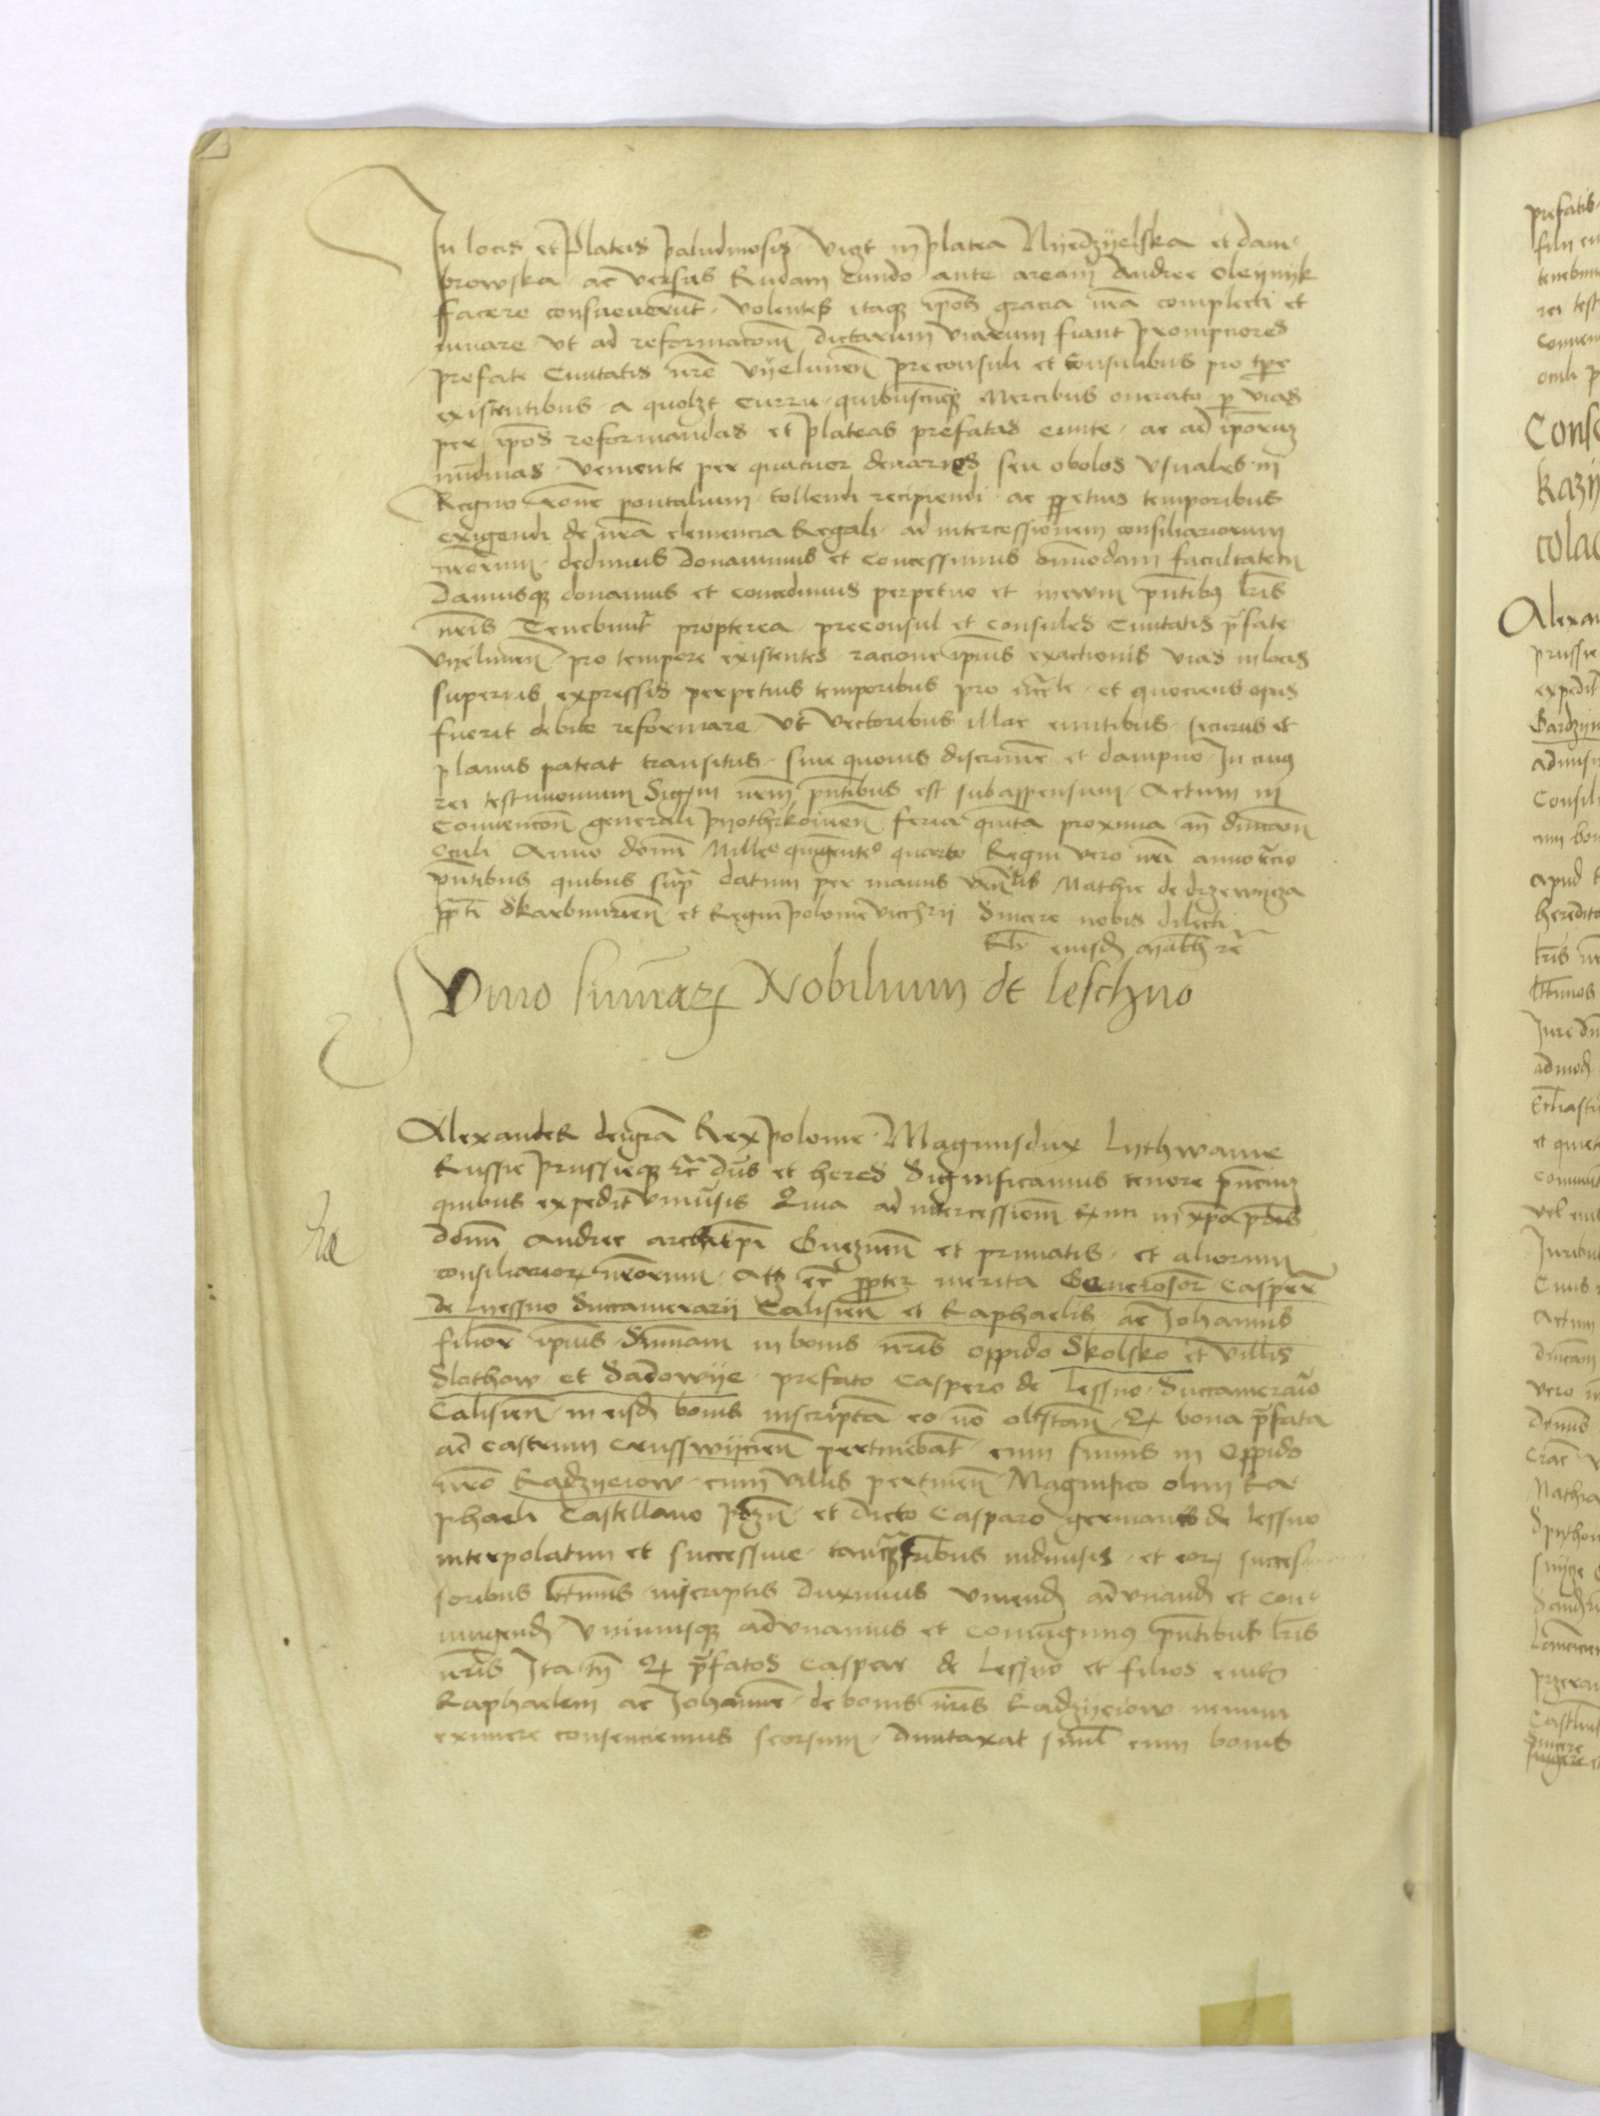 In locis et plateis paludinosis vigt in platea Nyedzyelska et dam
browska ac versus Rudam eundo ante aream Andree Oleynyk
facere consueuerunt volentes itaqz ipos gracia nrã complecti et
iuuare vt ad reformacom dictarum viarum fiant prompciores
prefate Ciuitatis nre Vyelunen preconsuli et Consulibus pro tpe
existentibus a quolzt curru quibuscunqz mercibus onerato p vias
per ipos reformandas et plateas prefatas eunte ac ad iporum
nundinas veniente per quatuor denarios seu obolos vsuales in
Regno rone pontalium tollendi recipiendi ac ppetuis temporibus
exigendi de nra clemencia Regali ad intercessionem consiliariorum
nrorum dedimus donauimus et concessimus omnmodam facultatem
Damusqz donamus et concedimus perpetuo et in ewm pntibus lris
nris Tenebuntr propterea preconsul et consules Ciuitatis pfate
Vyelunen pro tempore existentes racione ipius exactionis vias in locis
superius expressis perpetuis temporibus pro et quociens opus
fuerit debite reformare vt vectoribus illac euntibus securus et
planus pateat transitus sine quouis discrimine et dampno In cuius
rei testimonium Sigm nrm pntibus est subappensum Actum in
Conuencone generali Pyothrkouien feria quinta proxima an dnicam
Oculi Anno domi Milleo quingenteo quarto Regni vero nri anno tercio
pntibus quibus sup datum per manus venlis Mathie de drzewycza
ppti Skarbimirien et Regni polonie vicecanrij Sincere nobis dilecti
Rlo eiusd math rc
Vnio summarz Nobilium de leschno
Alexander deigra Rex polonie Magnusdux Lythwanie
Russie prussieqz rc dns et heres Significamus tenore pncium
quibus expedit vniuersis Quia ad intercessionem Rmi in xpo pris
domi Andree archiepi Gneznen et primatis et aliorum
consiliarior nrorum Atqz ec ppter merita Generosor Casper
de lyessno Succamerarij Calisien et Raphaelis ac Johannis
filior ipius Summam in bonis nris oppido Skolsko et villis
Slothow et Sadowye prefato Caspero de lessno Succamerario
Calisien in eisd bonis inscriptam eo no obstan q bona pfata
ad castrum Crusswycien pertinebat cum summis in Oppido
nro Radzyeiow cum villis pertinen Magnifico olim Ra
phaeli Castellano pozn et dicto Casparo germanis de lessno
interpolatim et successiue tamqz fribus indiuisis et eorz succes
soribus lttimis inscriptis duximus vniend adunand et con
iungend vnimusqz adunamus et coniungimus pntibus lris
nris Ita tn q pfatos Caspar de lessno et filios eius
Raphaelem ac Johannem de bonis nris Radzyeiow nemini
eximere consenciemus seorsum duntaxat siml cum bonis
prefatis
tenebun
rei test
conuen
oculi p
Cons
kazy
cola
Alexan
prussie
expedit
Gardzyn
admis
Consili
cum bon
apud
heredita
lris n
lttimos
Jure dn
admod
et quiet
comun
vel
Juribu
Cuius
Actum
dnicam
vero n
domis
Crac
Mathia
Spython
Sandn
Castlan
Sincere